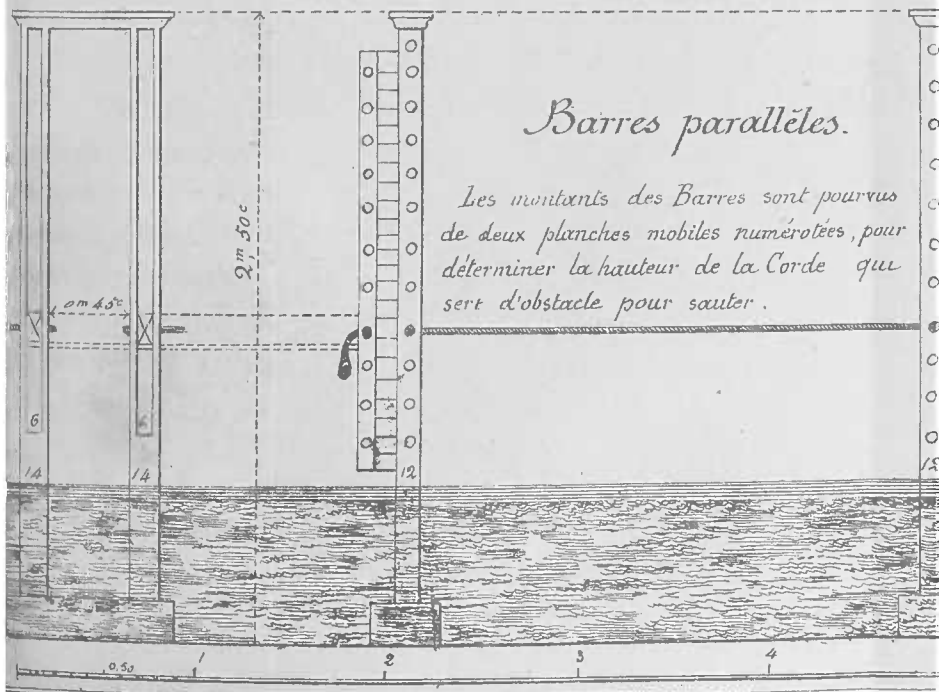 Barres parallèles.
Les montants des Barres sont pourvus
de deux planches mobiles numérotées, pour
déterminer la hauteur de la Corde qui
sert d'obstacle pour sauter.
2m, 50c
0m 45c
6
14
14
12
12
0,50
1
2
3
4